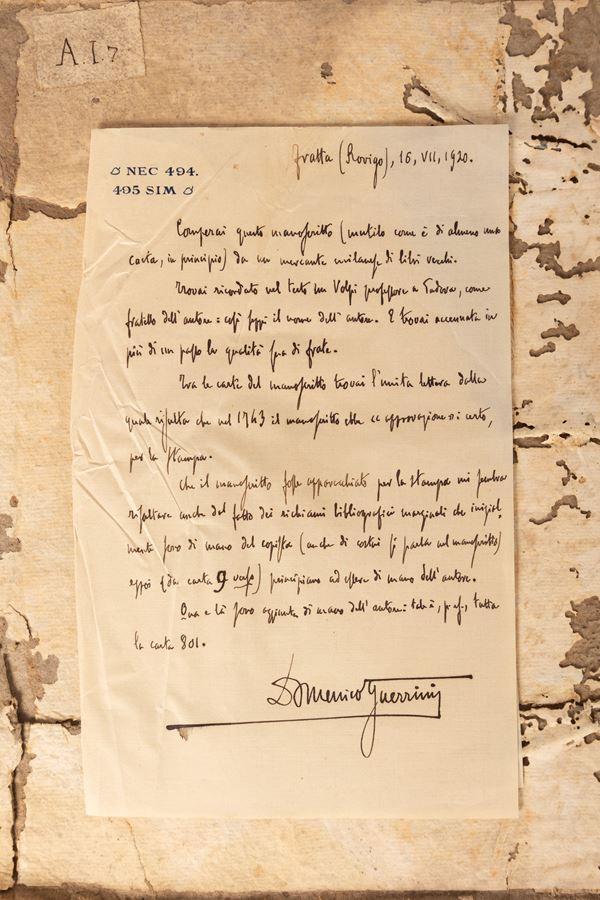 A.I.7
NEC 494.
495 SIM
Fratta (Rovigo), 16, VII, 1920.
Comperai questo manoſcritto (mutilo come è di almeno una
carta, in principio) da un mercante milaneſe di libri vecchi.
Trovai ricordato nel teſto un Volpi profeſſore a Padova, come
fratello dell'autore: coſì ſeppi il nome dell'autore. E trovai accennata in
più di un paſſo la qualità ſua di frate.
Tra le carte del manoſcritto trovai l'unita lettera dalla
quale riſulta che nel 1743 il manoſcritto ebbe approvazione: certo,
per la ſtampa.
Che il manoſcritto foſſe apparecchiato per la ſtampa mi ſembra
riſultare anche dal fatto dei richiami bibliografici marginali che inizial
mente ſono di mano del copiſta (anche di coſtui ſi parla nel manoſcritto)
e poi (da carta 9 verſo) principiano ad eſſere di mano dell'autore.
Qua e là ſono aggiunte di mano dell'autore: tale è, p. eſ., tutta
la carta 801.
Domenico Guerrini